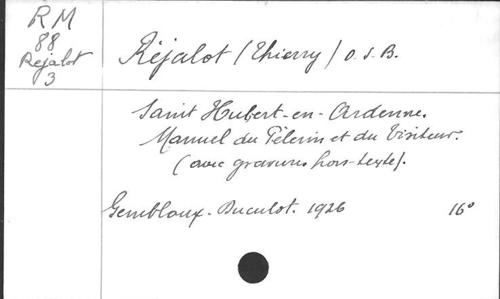 RM
88
Réjalot
3
Réjalot (Thierry) O.S.B.
Saint Hubert-en-Ardenne.
Manuel du Pèlerin et du Visiteur.
(avec gravures hors-texte).
Gembloux. Duculot. 1926 16°